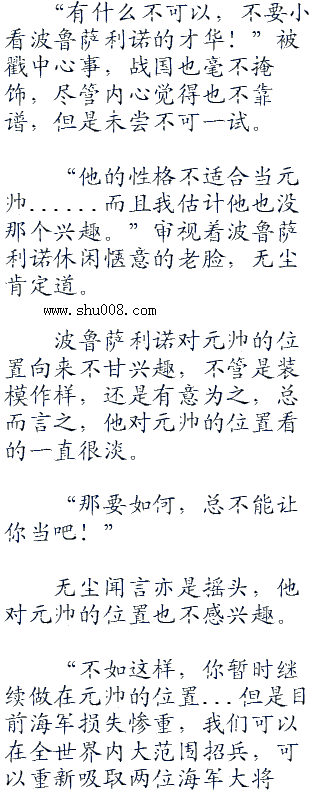 “有什么不可以，不要小
看波鲁萨利诺的才华！”被
戳中心事，战国也毫不掩
饰，尽管内心觉得也不靠
谱，但是未尝不可一试。
“他的性格不适合当元
帅......而且我估计他也没
那个兴趣。”审视着波鲁萨
利诺休闲惬意的老脸，无尘
肯定道。
www.shu008.com
波鲁萨利诺对元帅的位
置向来不甘兴趣，不管是装
模作样，还是有意为之，总
而言之，他对元帅的位置看
的一直很淡。
“那要如何，总不能让
你当吧！”
无尘闻言亦是摇头，他
对元帅的位置也不感兴趣。
“不如这样，你暂时继
续做在元帅的位置...但是目
前海军损失惨重，我们可以
在全世界内大范围招兵，可
以重新吸取两位海军大将